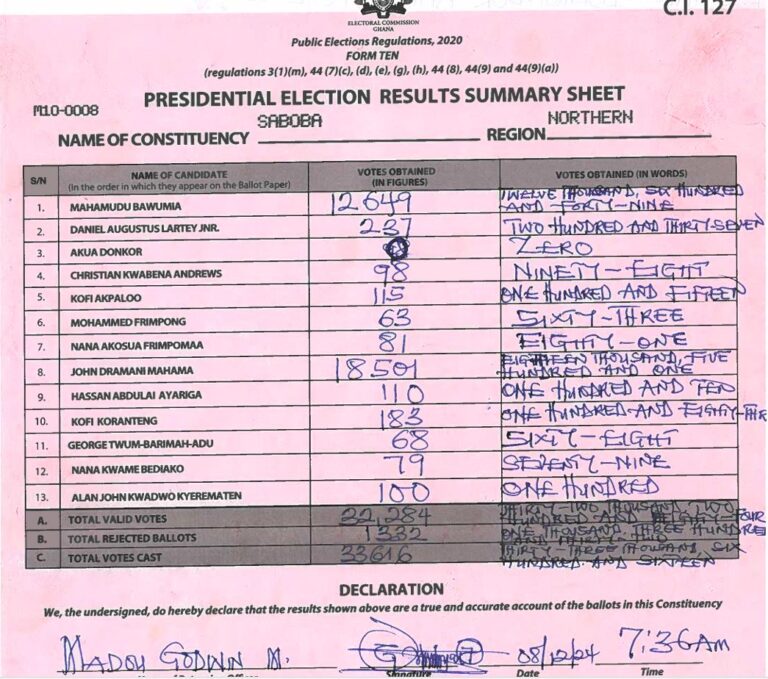 C.I. 127
ELECTORAL COMMISSION
GHANA
Public Elections Regulations, 2020
FORM TEN
(regulations 3(1)(m), 44 (7)(c), (d), (e), (g), (h), 44 (8), 44(9) and 44(9)(a))
M10-0008
PRESIDENTIAL ELECTION RESULTS SUMMARY SHEET
NAME OF CONSTITUENCY SABOBA REGION NORTHERN
S/N NAME OF CANDIDATE (In the order in which they appear on the Ballot Paper) VOTES OBTAINED (IN FIGURES) VOTES OBTAINED (IN WORDS)
1. MAHAMUDU BAWUMIA 12649 TWELVE THOUSAND, SIX HUNDRED AND FORTY-NINE
2. DANIEL AUGUSTUS LARTEY JNR. 237 TWO HUNDRED AND THIRTY-SEVEN
3. AKUA DONKOR ZERO
4. CHRISTIAN KWABENA ANDREWS 98 NINETY-EIGHT
5. KOFI AKPALOO 115 ONE HUNDRED AND FIFTEEN
6. MOHAMMED FRIMPONG 63 SIXTY-THREE
7. NANA AKOSUA FRIMPOMAA 81 EIGHTY-ONE
8. JOHN DRAMANI MAHAMA 18501 EIGHTEEN THOUSAND, FIVE HUNDRED AND ONE
9. HASSAN ABDULAI AYARIGA 110 ONE HUNDRED AND TEN
10. KOFI KORANTENG 183 ONE HUNDRED AND EIGHTY-THR
11. GEORGE TWUM-BARIMAH-ADU 68 SIXTY-EIGHT
12. NANA KWAME BEDIAKO 79 SEVENTY-NINE
13. ALAN JOHN KWADWO KYEREMATEN 100 ONE HUNDRED
A. TOTAL VALID VOTES 32,284 THIRTY-TWO THOUSAND, TWO HUNDRED AND EIGHTY FOUR
B. TOTAL REJECTED BALLOTS 1332 ONE THOUSAND THREE HUNDRED AND THIRTY-TWO
C. TOTAL VOTES CAST 33616 THIRTY-THREE THOUSAND, SIX HUNDRED AND SIXTEEN
DECLARATION
We, the undersigned, do hereby declare that the results shown above are a true and accurate account of the ballots in this Constituency
MADOH GODWIN M. 08/12/24 7:36AM
Signature Date Time